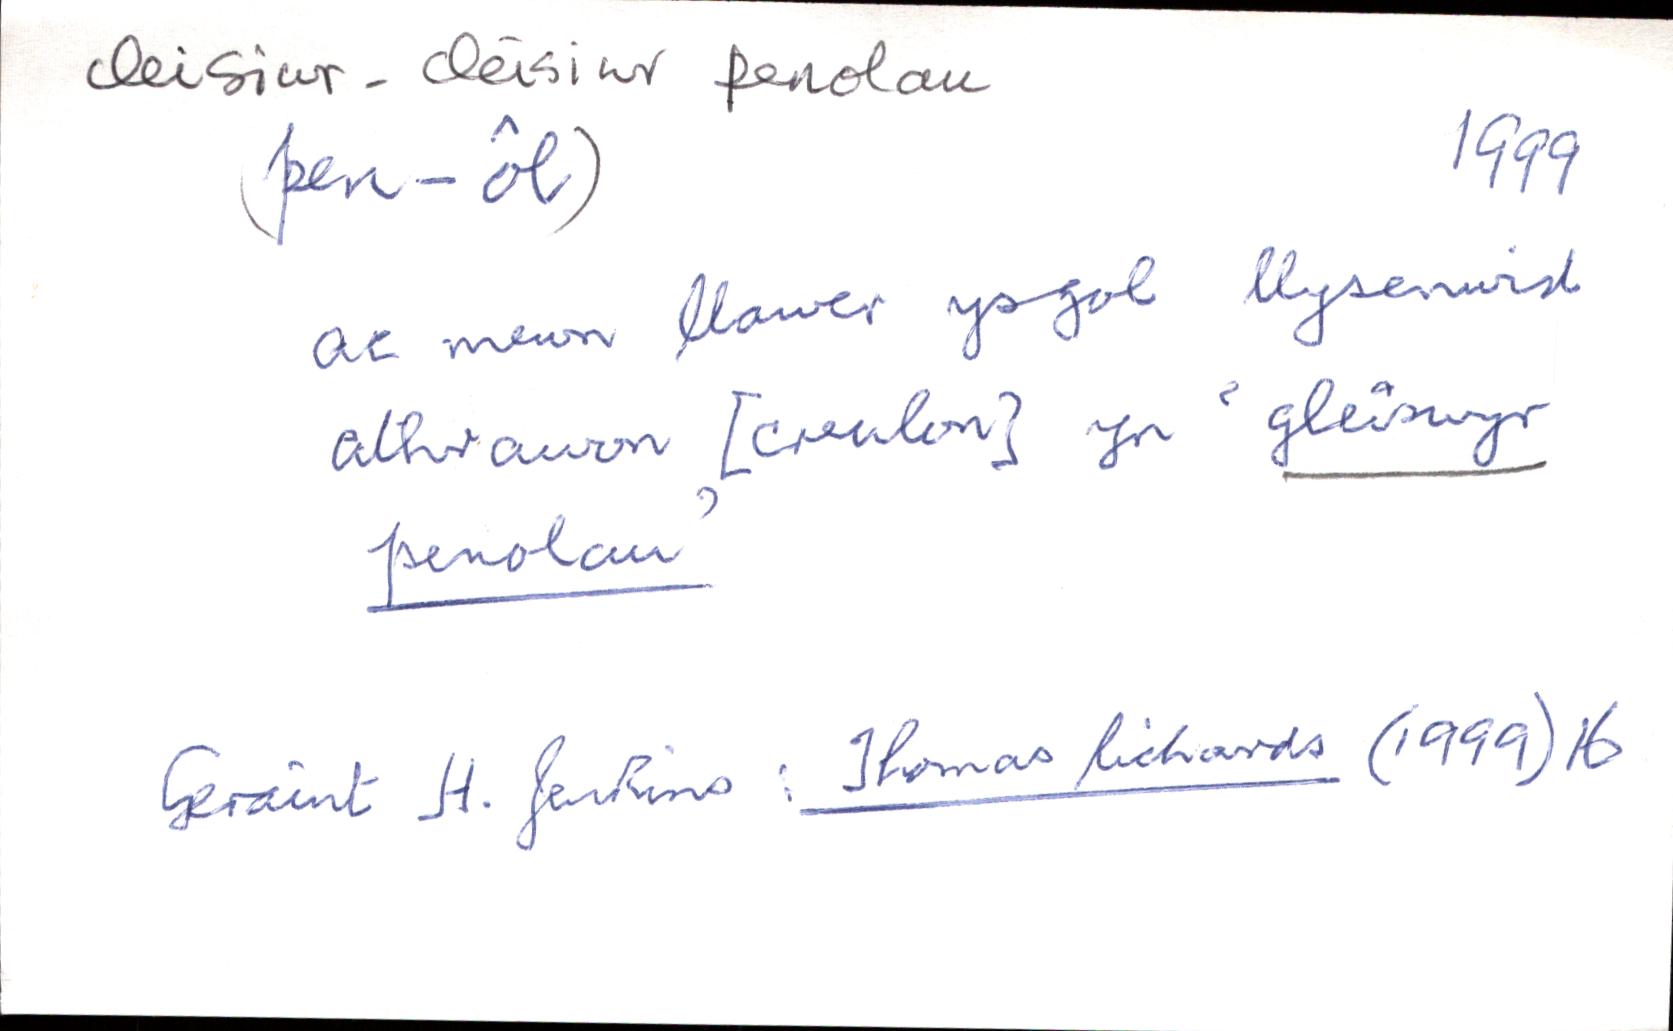 cleisiwr - clëisiwr penolau
(pen-ôl)
1999
ac mewn llawer ysgol llysenwid
athrawon [creulon] yn 'gleiswyr
penolau'
Geraint H. Jenkins : Thomas Richards (1999) 16